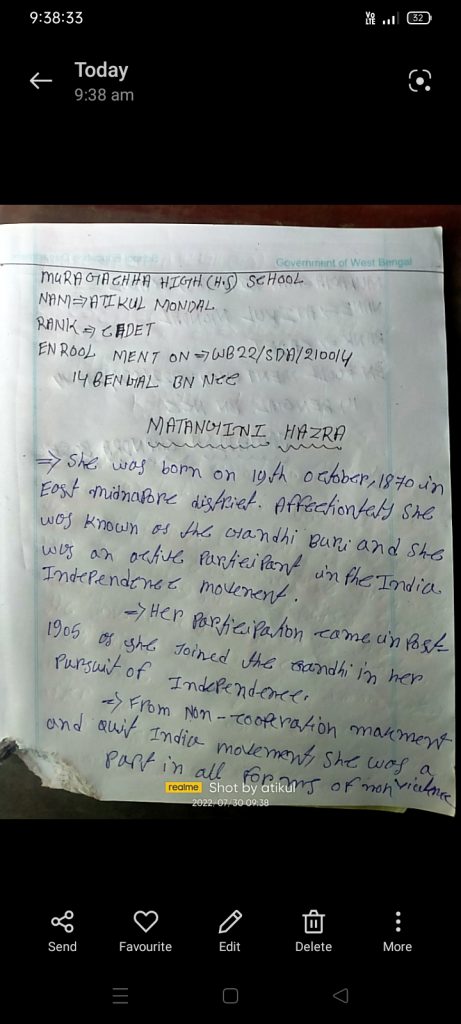 9:38:33
Vo LTE
32
Today
9:38 am
Government of West Bengal
MURAGACHHA HIGH (H.S) SCHOOL
NAM⇒ATIKUL MONDAL
RANK ⇒ CADET
ENROOL MENT ON ⇒WB22/SDA/210014
14 BENGAL BN NCC
MATANGINI HAZRA
⇒ She was born on 19th october, 1870 in
East midnapore district. Affectiontely she
was known as the Gandhi Buri and she
was an active Participant in the India
Independence movement.
⇒ Her Participation came in Post-
1905 as she Joined the Gandhi in her
Pursuit of Independence.
⇒ From Non-cooperation
and Quit India movement, she was a
Part in all forms of non
realme Shot by atikul
2022/07/30 09:38
Send Favourite Edit Delete More